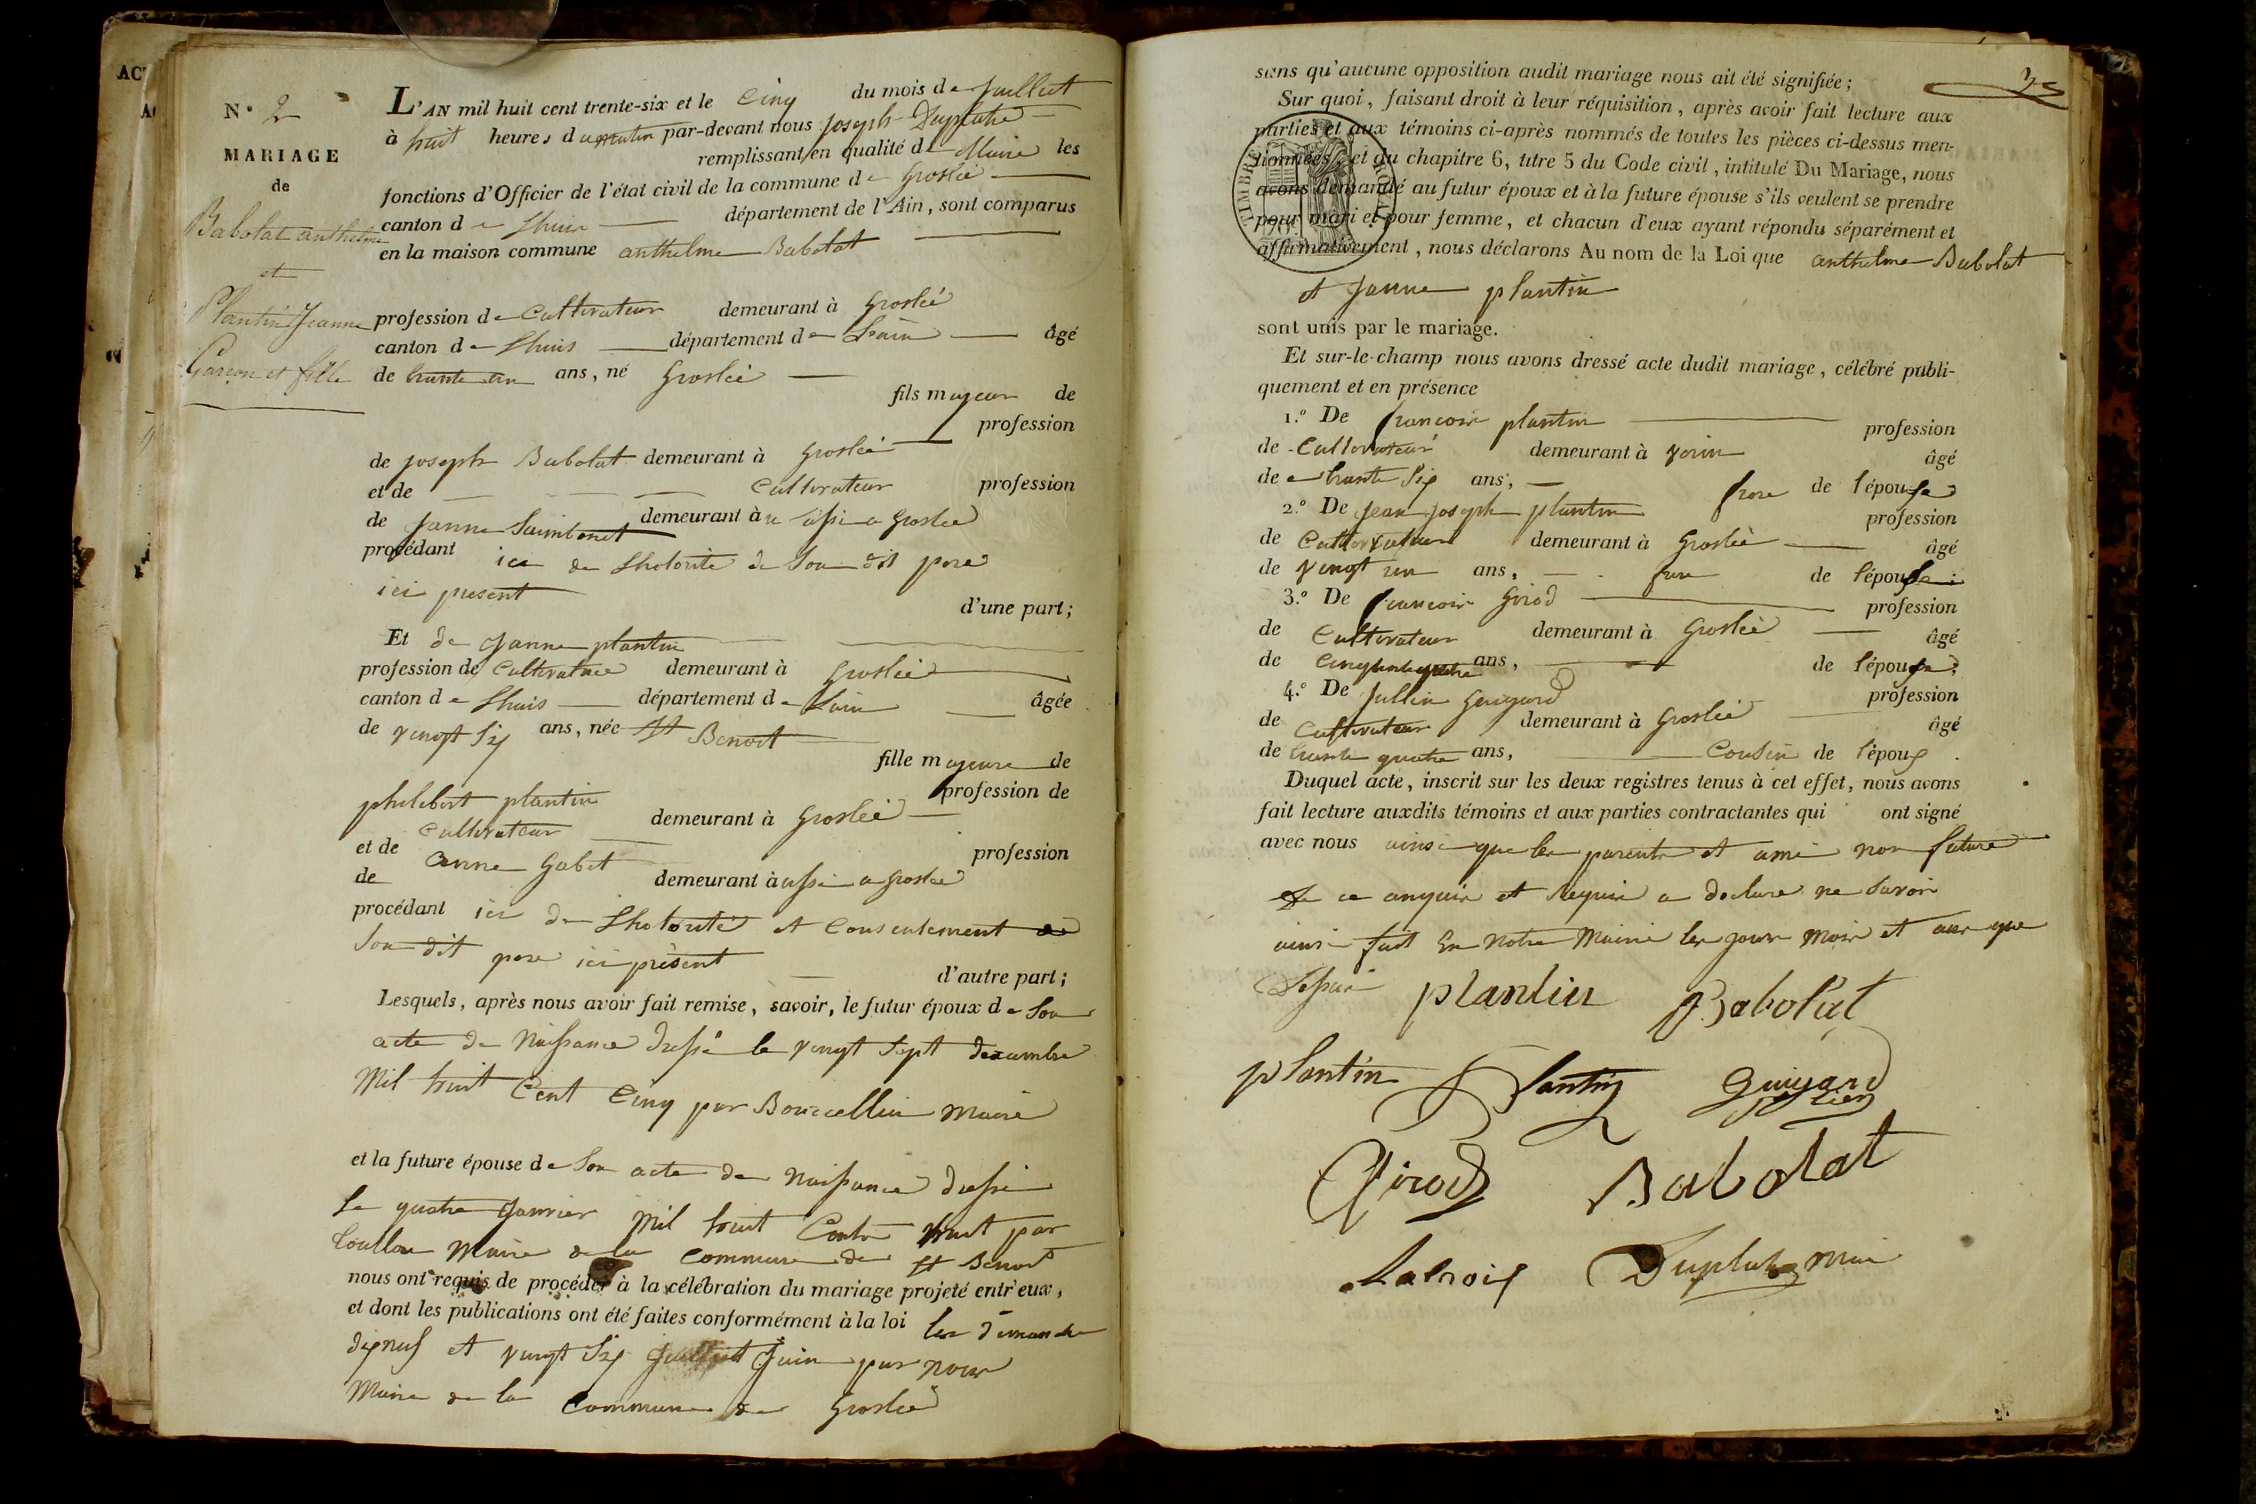 N.º 2
MARIAGE
de
Babolat anthelme
et
Plantin Jeanne
Garçon et fille
L'AN mil huit cent trente-six et le cinq du mois de Juillet
à huit heures du matin par-devant nous joseph Duplatre
remplissant en qualité de Maire les
fonctions d'Officier de l'état civil de la commune de Groslée
canton d e Lhuis département de l'Ain, sont comparus
en la maison commune anthelme Babolat
profession de Cultivateur demeurant à Groslée
canton de Lhuis département de Lain âgé
de trante un ans, né Groslée
fils majeur de
profession
de joseph Babolat demeurant à Groslée
et de Cultivateur profession
de Janne Saintonet demeurant à aussi a Groslée
procédant ici de Lhotorité de Son dit pere
ici present
d'une part;
Et de Janne plantin
profession de Cultivatrice demeurant à Groslée
canton de Lhuis département de Lain âgée
de vingt Six ans, née St Benoit
fille majeure de
profession de
philibert plantin
Cultivateur demeurant à Groslée
et de anne Gabet profession
de demeurant à aussi a Groslée
procédant ici de Lhotorité et Consentement de
Son dit pere ici présent
d'autre part;
Lesquels, après nous avoir fait remise, savoir, le futur époux de Son
acte de Naissance dressé le vingt Sept decembre
Mil huit Cent Cinq par maire
et la future épouse de Son acte de Naissance dressé
Le quatre Janvier Mil huit Cents huit par
maire de la Commune de St Benoit
nous ont requis de procéder à la célébration du mariage projeté entr'eux,
et dont les publications ont été faites conformément à la loi les dimanche
dixneuf et vingt Six Juin par nous
Maire de la Commune de Groslée
35
sans qu'aucune opposition audit mariage nous ait été signifiée;
Sur quoi, faisant droit à leur réquisition, après avoir fait lecture aux
parties et aux témoins ci-après nommés de toutes les pièces ci-dessus men-
tionnées, et du chapitre 6, titre 5 du Code civil, intitulé Du Mariage, nous
avons demandé au futur époux et à la future épouse s'ils veulent se prendre
pour mari et pour femme, et chacun d'eux ayant répondu séparément et
affirmativement, nous déclarons Au nom de la Loi que anthelme Babolat
et Janne plantin
sont unis par le mariage.
Et sur-le-champ nous avons dressé acte dudit mariage, célébré publi-
quement et en présence
1.º De francois plantin profession
de Cultivateur demeurant à âgé
de trante Six ans, frere de l'épouse
2.º De Jean joseph plantin profession
de Cultivateur demeurant à Groslée âgé
de vingt un ans, frere de l'épouse
3.º De francois Girod profession
de Cultivateur demeurant à Groslée âgé
de Cinquante quatre ans, de l'épouse;
4.º De Jullien Guigard profession
de Cultivateur demeurant à Groslée âgé
de trante quatre ans, Cousin de l'époux.
Duquel acte, inscrit sur les deux registres tenus à cet effet, nous avons
fait lecture auxdits témoins et aux parties contractantes qui ont signé
avec nous ainsi que les parents et ami non future
de ce anquis et Requis a declare ne Savoir
ainsi fait En Notre Mairie les jour mois et ans que
Dessus
plantin Babolat
plantin Plantin Guigard
Girod Babolat
Lacroix Duplatre maire
TIMBRE ROYAL